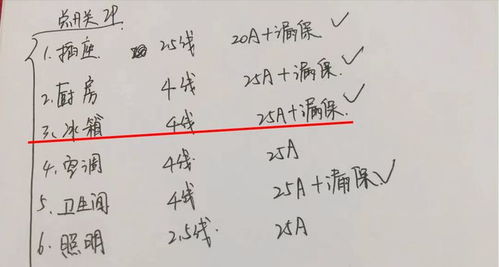 总开关 2P
1. 插座 2.5线 20A+漏保 ✓
2. 厨房 4线 25A+漏保 ✓
3. 冰箱 4线 25A+漏保 ✓
4. 空调 4线 25A
5. 卫生间 4线 25A+漏保 ✓
6. 照明 2.5线. 25A